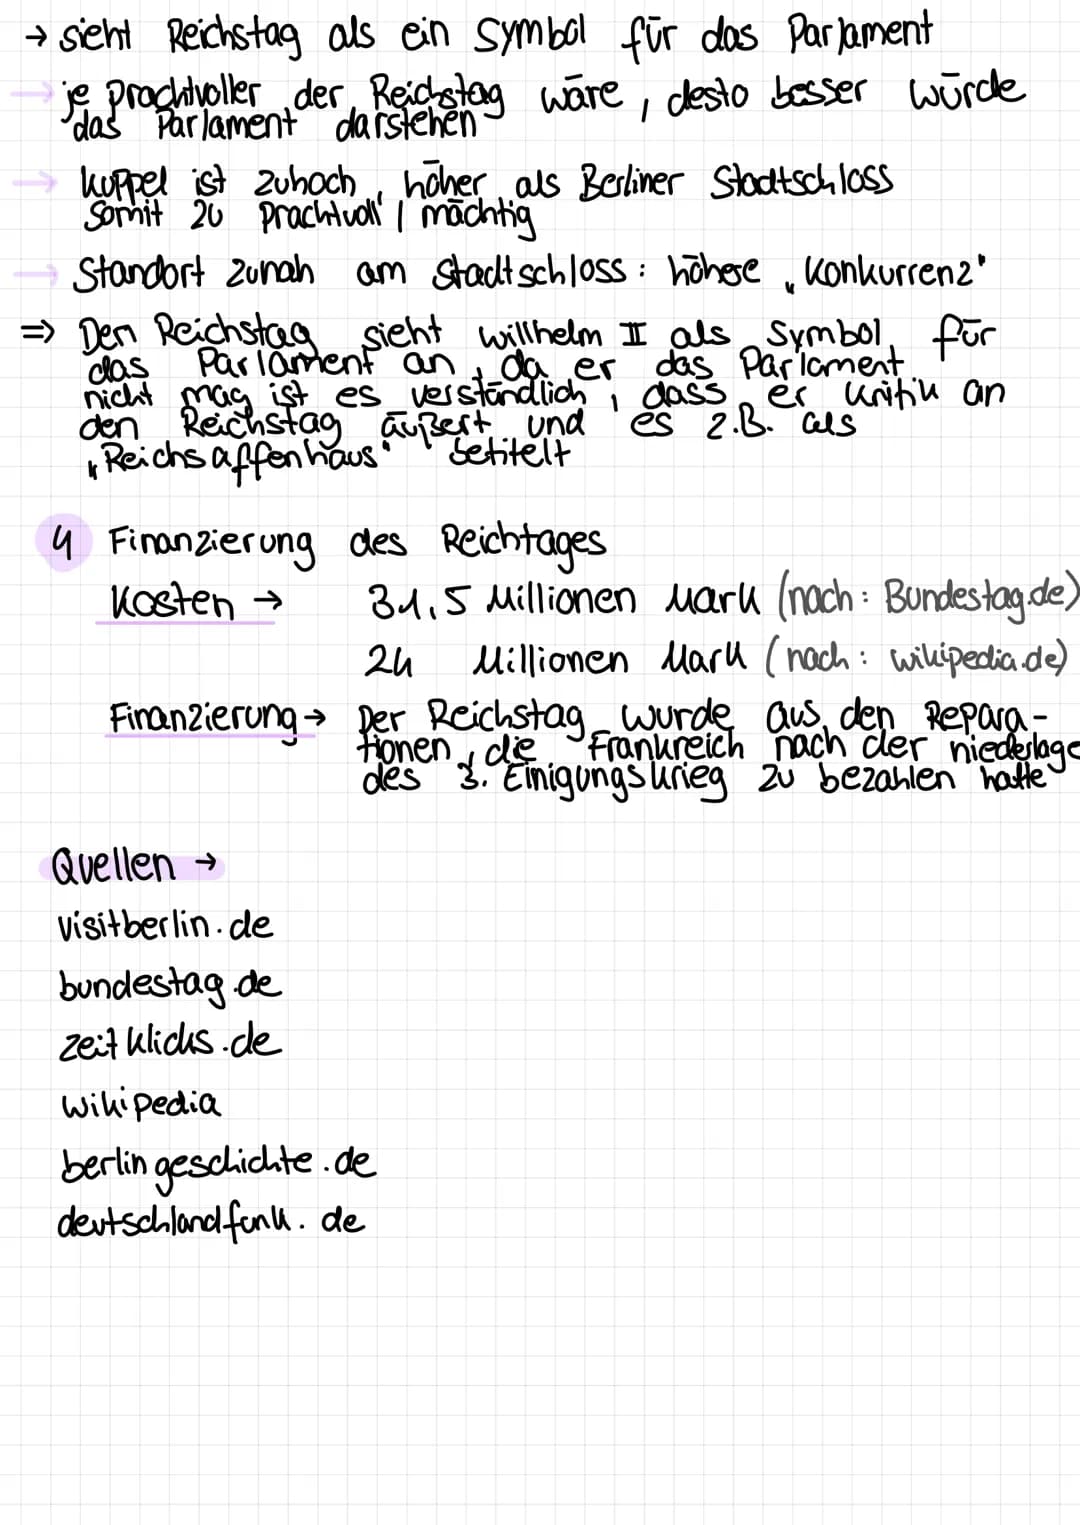 → sieht Reichstag als ein Symbol für das Parlament
→ je prachtvoller der Reichstag wäre, desto besser würde
das Parlament darstehen
→ Kuppel ist zuhoch, höher als Berliner Stadtschloss
somit zu prachtvoll / mächtig
→ Standort zunah am Stadtschloss: höhere „Konkurrenz"
⇒ Den Reichstag sieht willhelm II als Symbol für
das Parlament an, da er das Parlament
nicht mag ist es verständlich, dass er Kritik an
den Reichstag äußert und es z.B. als
„Reichsaffenhaus" betitelt
4 Finanzierung des Reichtages
Kosten → 31,5 Millionen Mark (nach: Bundestag.de)
24 Millionen Mark (nach: wikipedia.de)
Finanzierung → Der Reichstag wurde aus den Repara-
tionen, die Frankreich nach der niederlage
des 3. Einigungskrieg zu bezahlen hatte
Quellen →
visitberlin.de
bundestag.de
zeitklicks.de
wikipedia
berlingeschichte.de
deutschlandfunk.de